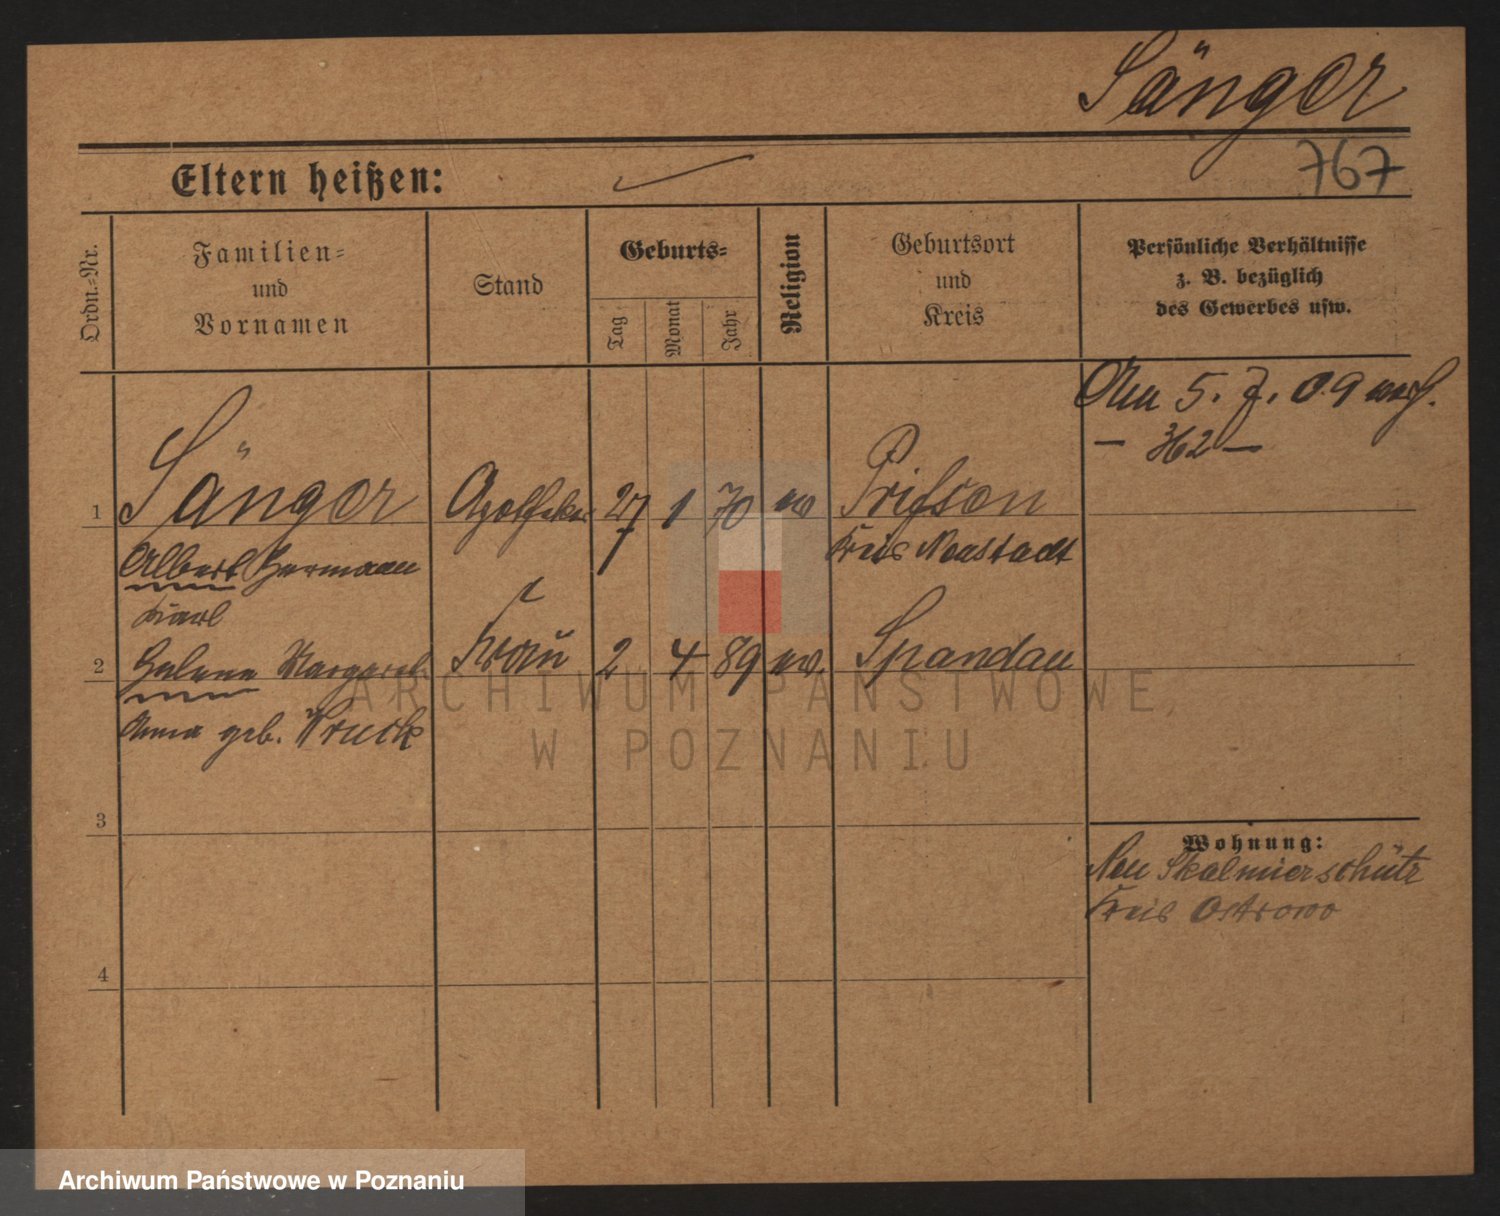 Sänger
767
Eltern heißen:
Ordn.-Nr.
Familien-
und
Vornamen
Stand
Geburts-
Tag
Monat
Jahr
Religion
Geburtsort
und
Kreis
Persönliche Verhältnisse
z. B. bezüglich
des Gewerbes usw.
5. 7. 09
– 362 –
1 Sänger Apotheker 27 1 70 ev
Albert Hermann Kreis Neustadt
Karl
2 Helene Margareth. Frau 2 4 89 ev. Spandau
Anna geb. Kruck
3
Wohnung:
Neu Skalmierschütz
Kreis Ostrowo
4
ARCHIWUM PAŃSTWOWE
W POZNANIU
Archiwum Państwowe w Poznaniu